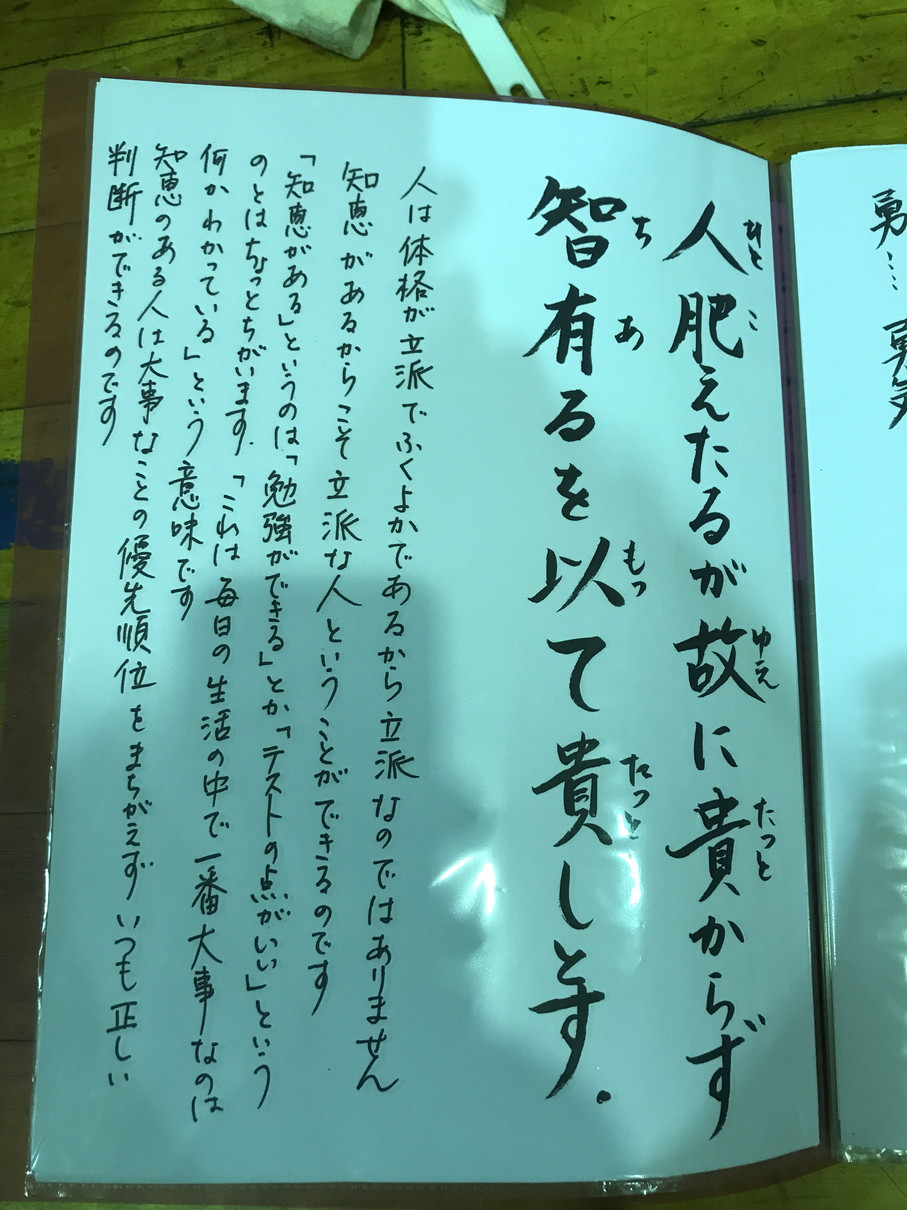 勇… 勇気
人肥えたるが故に貴からず
ひと こ ゆえ たっと
智有るを以て貴しとす.
ち あ もっ たっと
人は体格が立派でふくよかであるから立派なのではありません
知恵があるからこそ立派な人ということができるのです
「知恵がある」というのは「勉強ができる」とか「テストの点がいい」という
のとはちょっとちがいます.「これは毎日の生活の中で一番大事なのは
何かわかっている」という意味です
知恵のある人は大事なことの優先順位をまちがえずいつも正しい
判断ができるのです